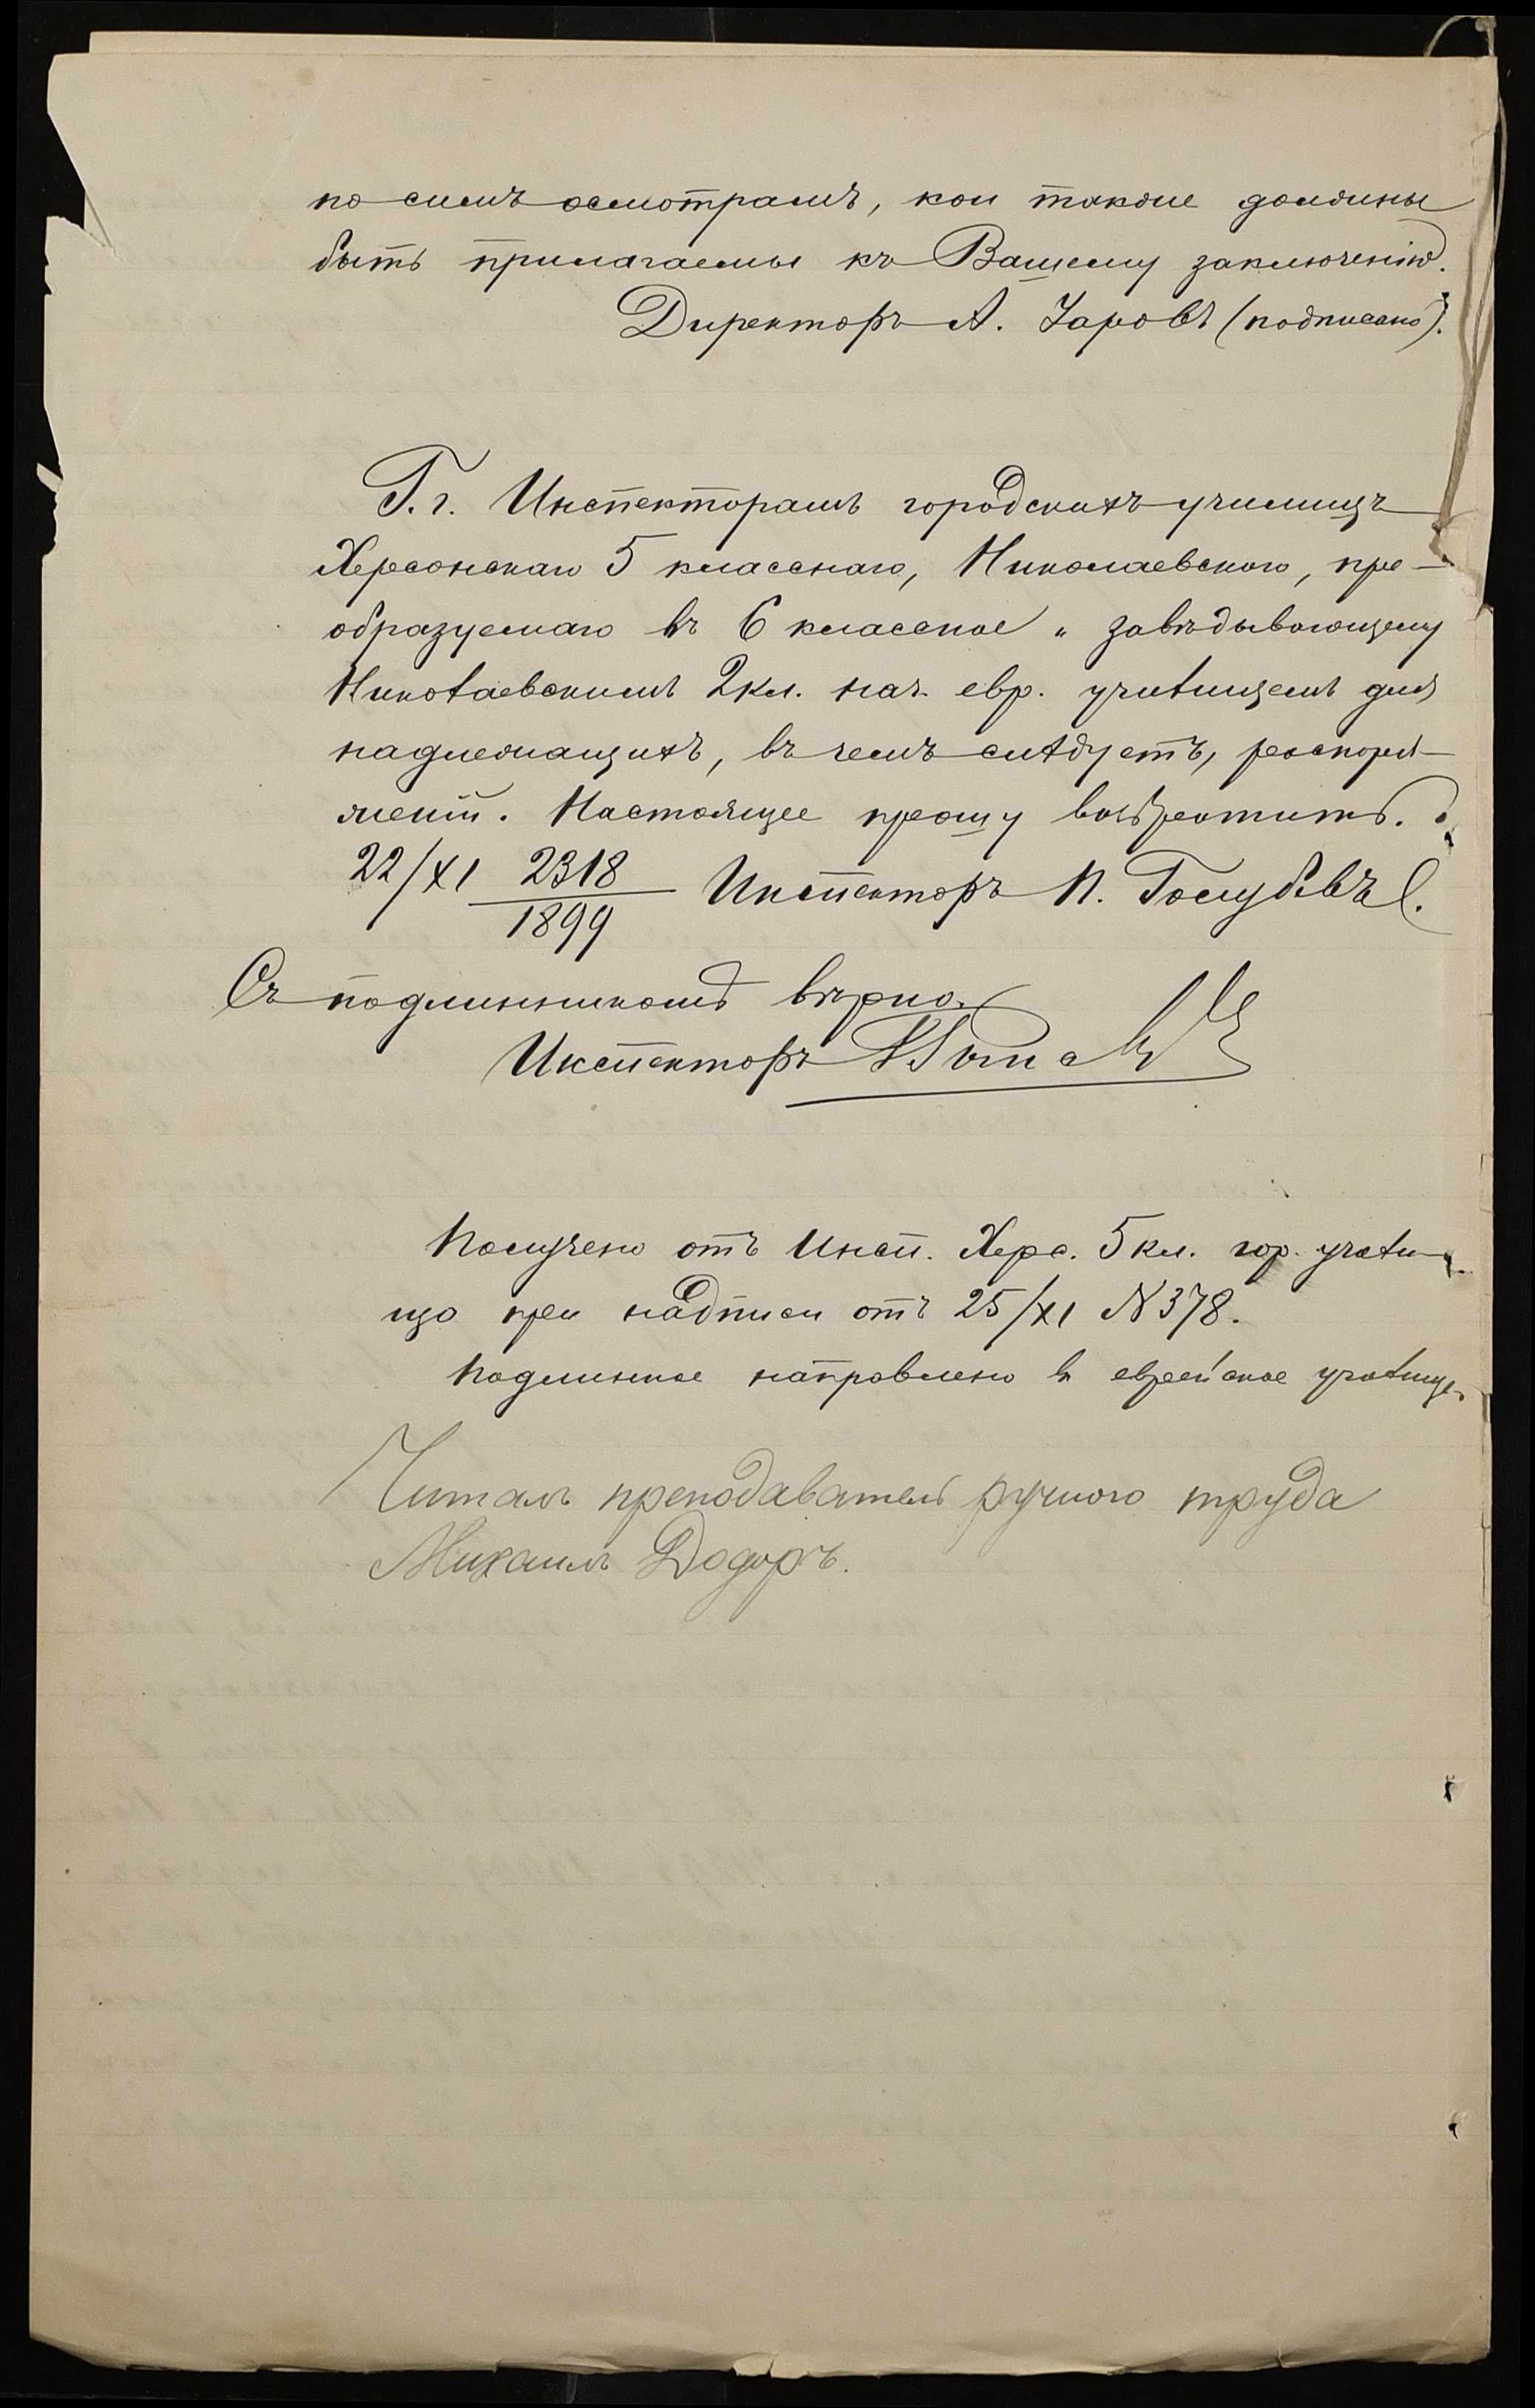 по симъ осмотрамъ, кои также должны
быть прилагаемы къ Вашему заключенію.
Директоръ А. (подписано).
Г.г. Инспекторамъ городскихъ училищъ
Херсонскаго 5 класснаго, Николаевского, пре-
образуемаго въ 6 классное и завѣдывающему
Николаевскимъ 2 кл. нач. евр. училищемъ для
надлежащихъ, въ чемъ слѣдуетъ, распоря-
женій. Настоящее прошу возвратить.
22/XI 2318/1899 Инспекторъ П. Голубовъ
Съ подлинникомъ вѣрно.
Инспекторъ
Получено отъ Инсп. Херс. 5 кл. гор. учили-
ща при надписи отъ 25/XI N 378.
Подлинное направлено въ еврейское училище.
Читалъ преподаватель ручного труда
Михаилъ